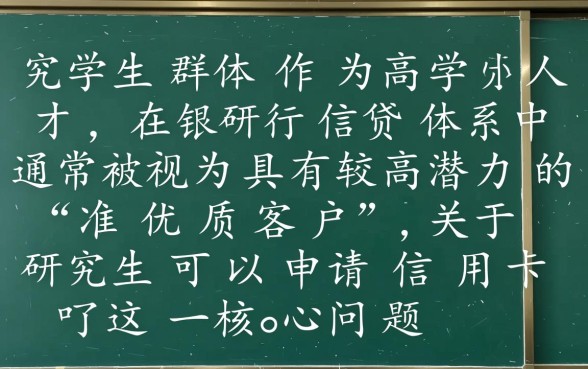 究学生群体作为高学历人
才，在银研行信贷体系中
通常被视为具有较高潜力的
“准优质客户”，关于
研究生可以申请信用卡
吖这一核心问题